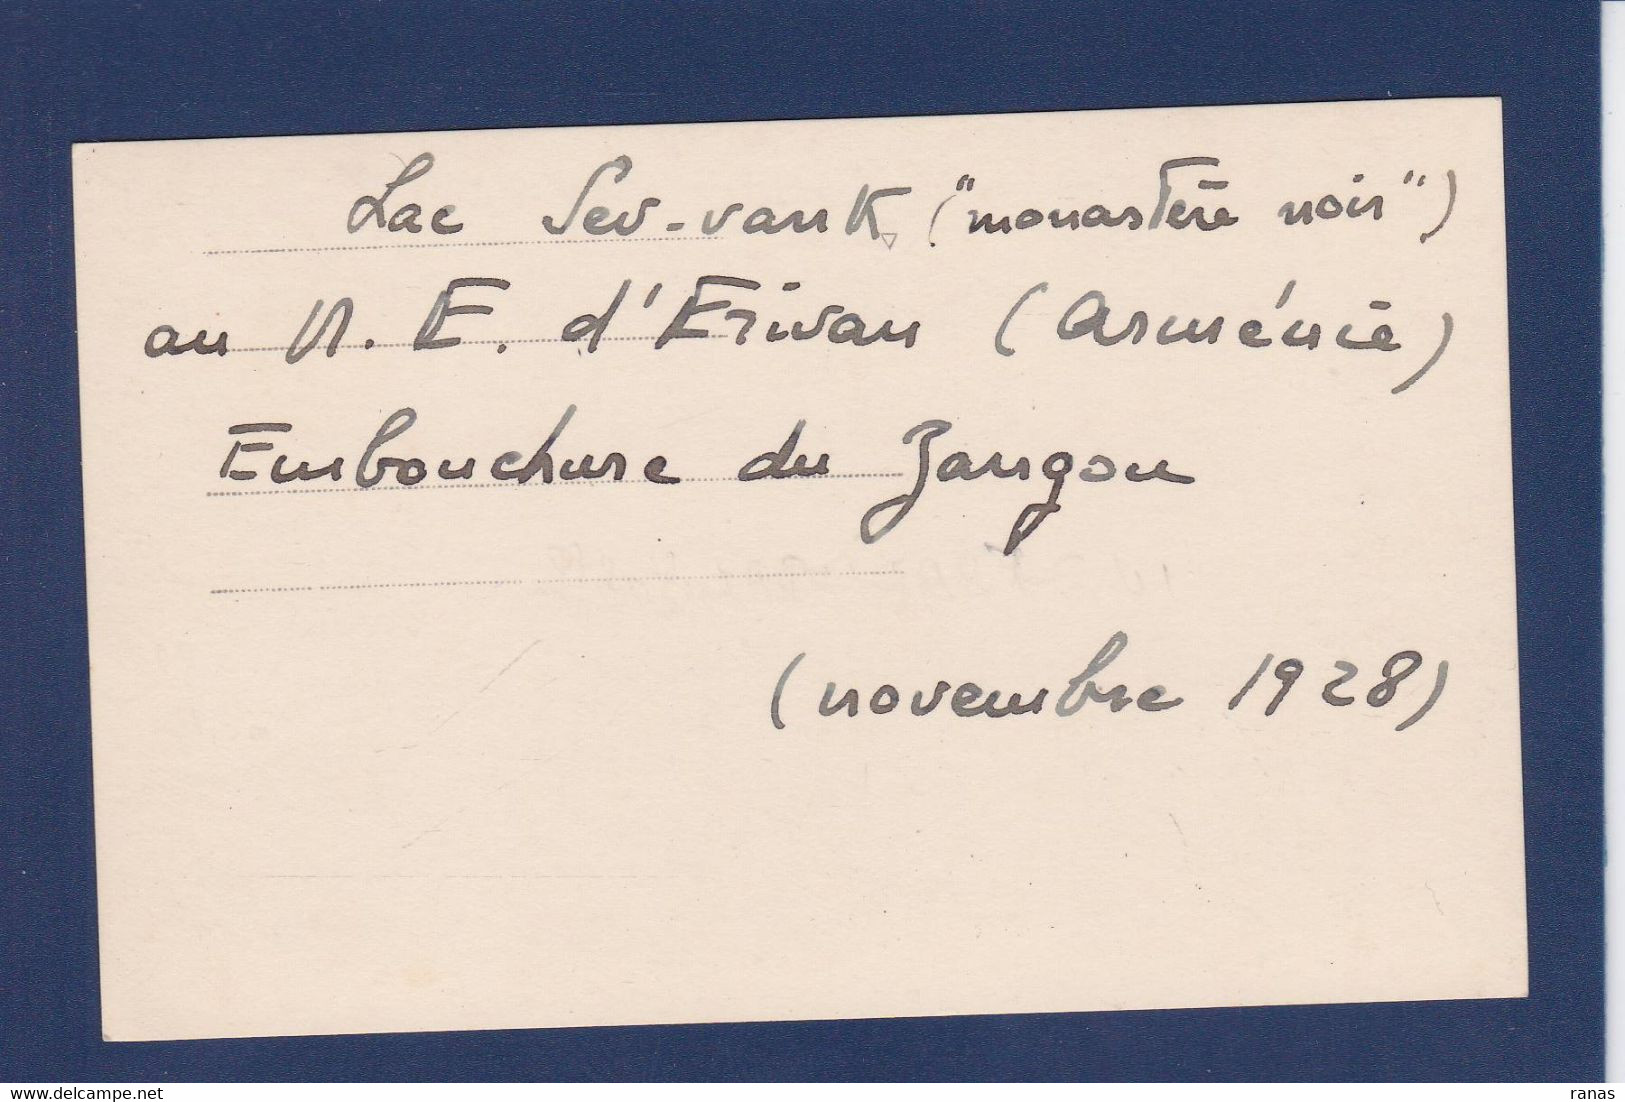 Lac Sev-vank ("monastère noir")
au N. E. d'Erivan (Arménie)
Embouchure du Zangou
(novembre 1928)
ranas